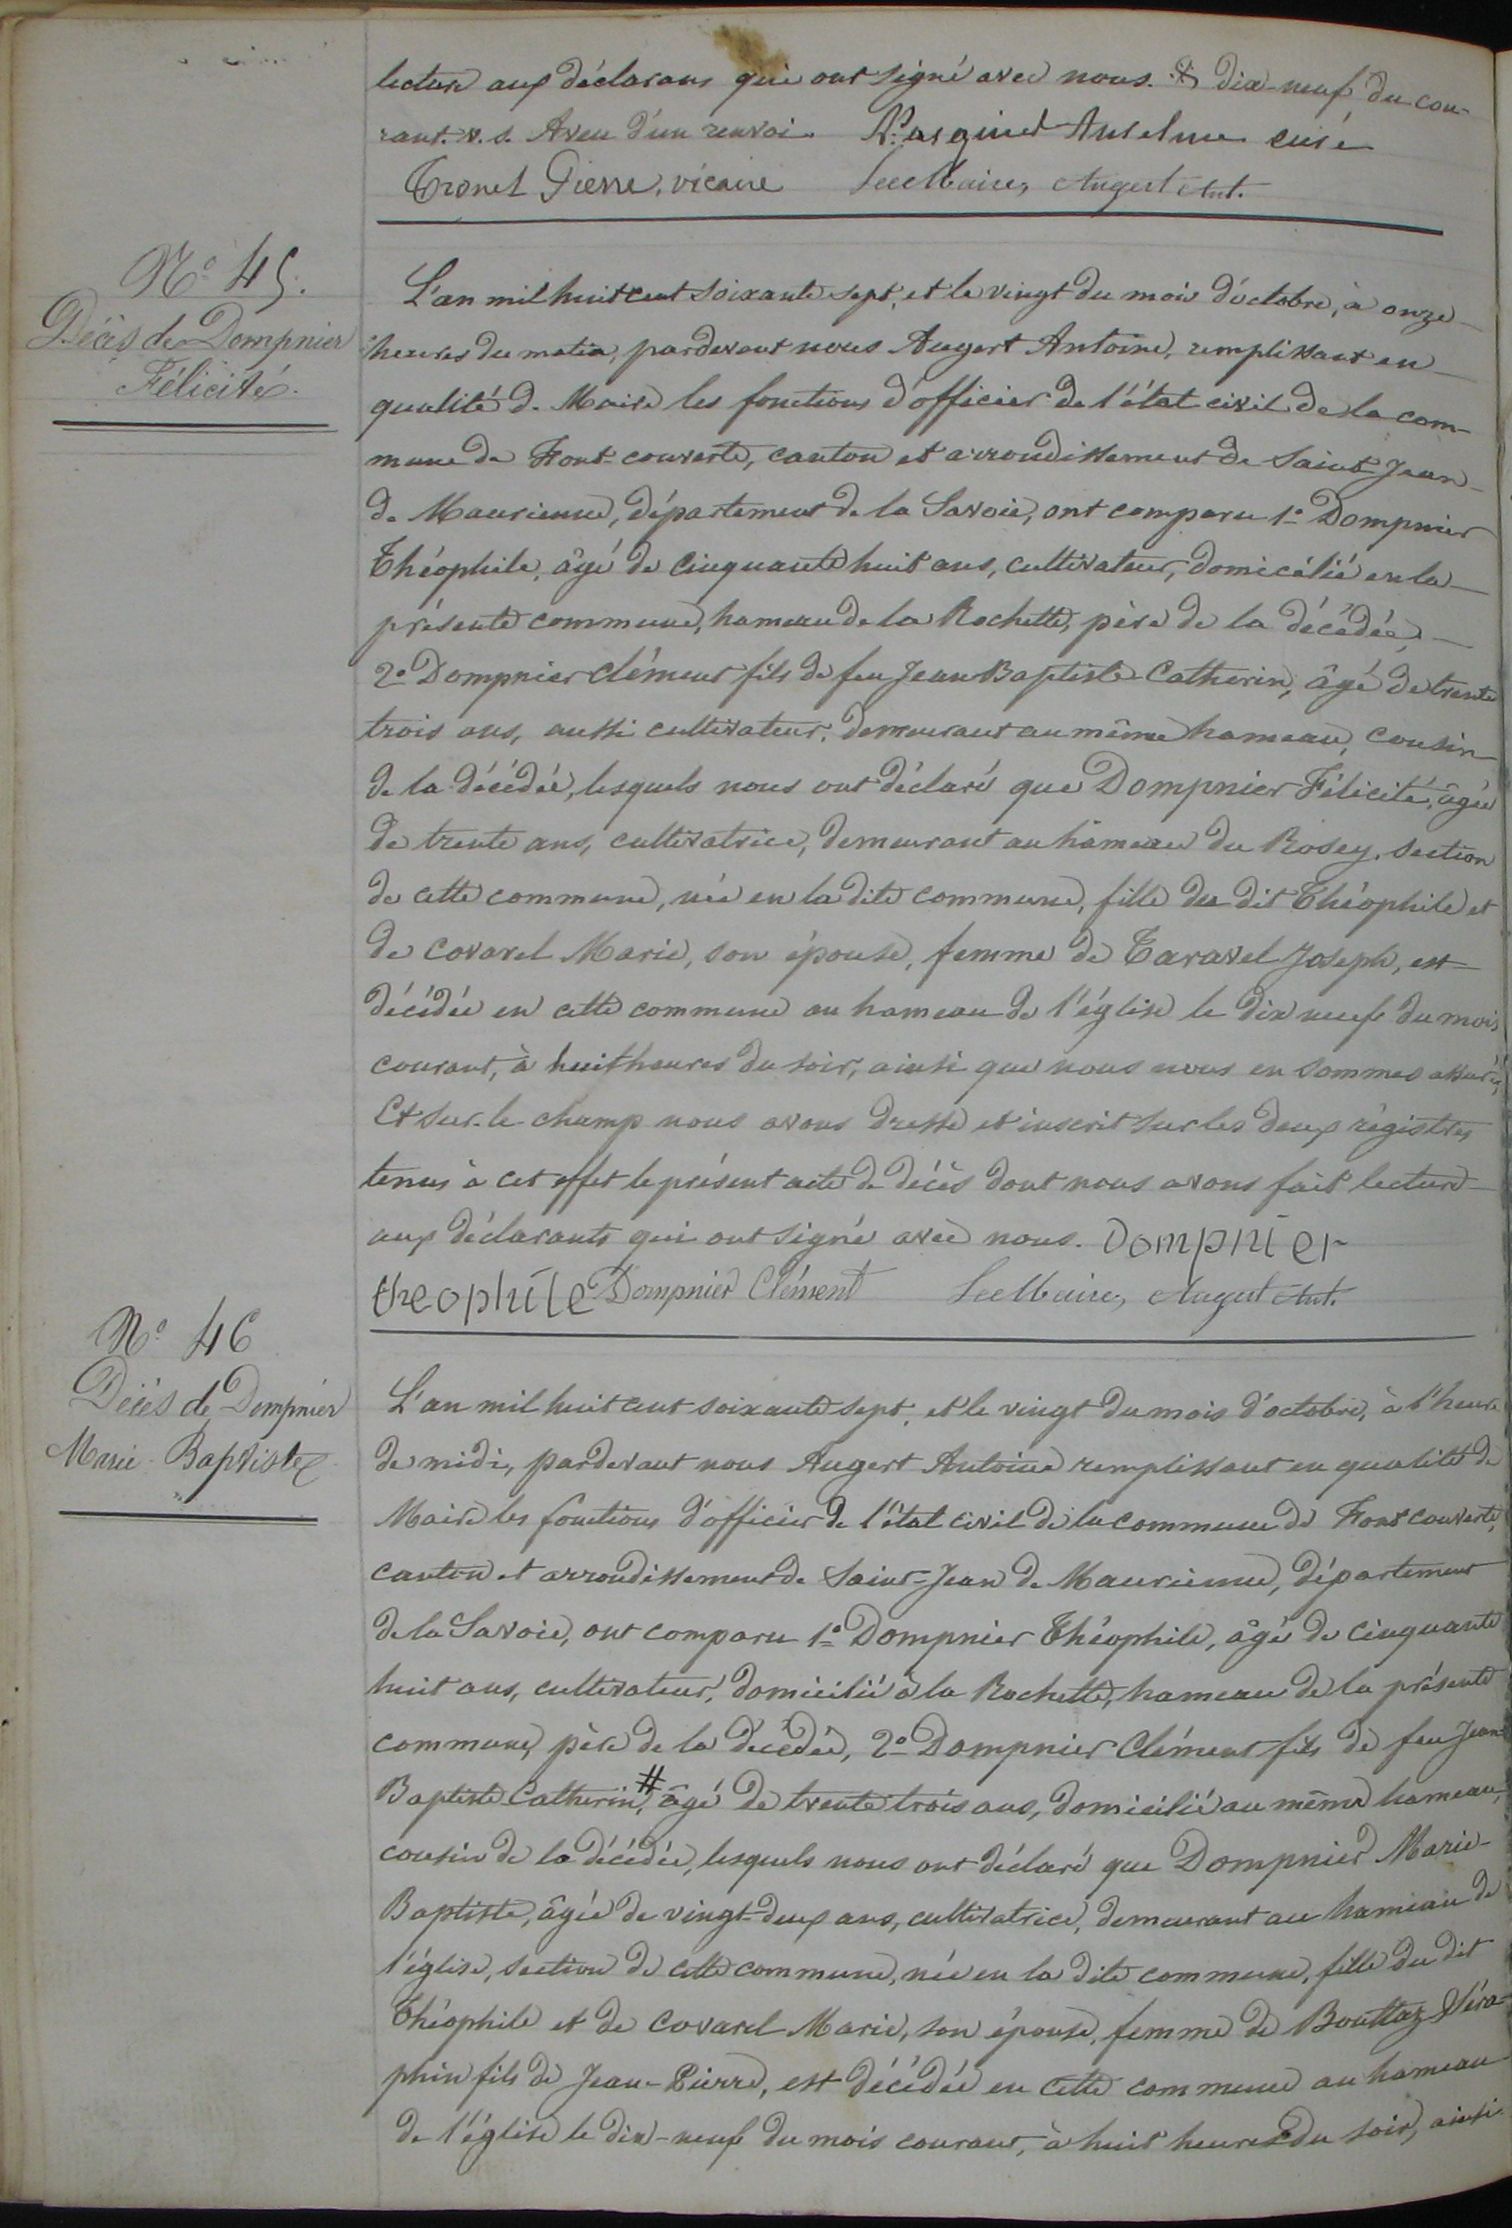 lecture aux déclarans qui ont signé avec nous. dix-neuf du cou-
rant. v. s. Aveu d'un renvoi. Anselme curé
Tronel Pierre, vicaire Le Maire, Augert Ant.
N° 45.
Décès de Dompnier
Félicité.
L'an mil huit cent soixante sept, et le vingt du mois d'octobre, à onze
heures du matin, pardevant nous Augert Antoine, remplissant en
qualité de Maire les fonctions d'officier de l'état civil de la com-
mune de Font-couverte, canton et arrondissement de Saint Jean
de Maurienne, département de la Savoie, ont comparu 1° Dompnier
Théophile, âgé de cinquante huit ans, cultivateur, domicélié en la
présente commune, hameau de la Rochette, père de la décédée,
2° Dompnier Clément fils de feu Jean Baptiste Catherin, âgé de trente
trois ans, aussi cultivateur, demeurant au même hameau, cousin
de la décédée, lesquels nous ont déclaré que Dompnier Félicité, âgée
de trente ans, cultivatrice, demeurant au hameau du Rosey, section
de cette commune, née en la dite commune, fille du dit Théophile et
de Covarel Marie, son épouse, femme de Taravel Joseph, est
décédée en cette commune au hameau de l'église le dix neuf du mois
courant, à huit heures du soir, ainsi que nous nous en sommes assurés,
Et sur-le champ nous avons dressé et inscrit sur les deux régistres
tenus à cet effet le présent acte de décès dont nous avons fait lecture
aux déclarants qui ont signé avec nous. Dompnier
theophile Dompnier Clément Le Maire, Augert Ant.
N° 46
Décès de Dompnier
Marie Baptiste
L'an mil huit cent soixante sept, et le vingt du mois d'octobre, à l'heure
de midi, pardevant nous Augert Antoine remplissant en qualité de
Maire les fonctions d'officier de l'état civil de la commune de Font couverte,
canton et arrondissement de Saint-Jean de Maurienne, département
de la Savoie, ont comparu 1° Dompnier Théophile, âgé de cinquante
huit ans, cultivateur, domicilié à la Rochette, hameau de la présente
commune, père de la décédée, 2° Dompnier Clément fils de feu Jean
Baptiste Catherin,# âgé de trente trois ans, domicilié au même hameau,
cousin de la décédée, lesquels nous ont déclaré que Dompnier Marie-
Baptiste, âgée de vingt-deux ans, cultivatrice, demeurant au hameau de
l'église, section de cette commune, née en la dite commune, fille du dit
Théophile et de Covarel Marie, son épouse, femme de Bouttaz Séra-
phin fils de Jean-Pierre, est décédée en cette commune au hameau
de l'église le dix-neuf du mois courant, à huit heures du soir, ainsi